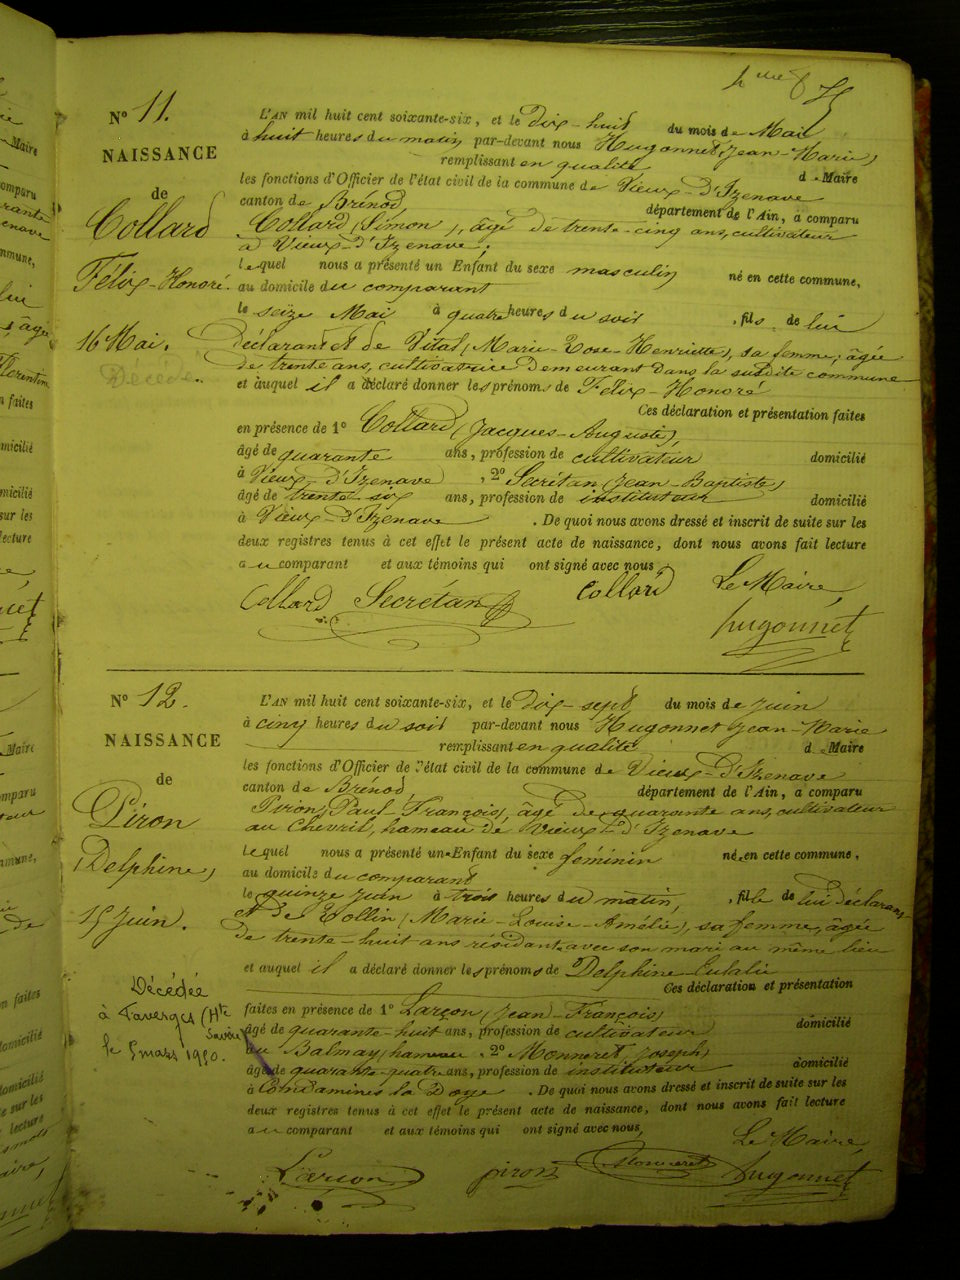 N° 11.
NAISSANCE
de
Collard
Félix-Honoré.
16 Mai.
Décédé.
L'AN mil huit cent soixante-six, et le Dix-huit du mois de Mai
à huit heures du matin par-devant nous Hugonnet, Jean-Marie,
remplissant en qualité de Maire
les fonctions d'Officier de l'état civil de la commune de Vieux-D'Izenave
canton de Brénod, département de l'Ain, a comparu
Collard, (Simon), âgé de trente-cinq ans, cultivateur
à Vieux-D'Izenave,
lequel nous a présenté un Enfant du sexe masculin né en cette commune,
au domicile du comparant
le seize Mai à quatre heures du soir, fils de lui
Déclarant et de Vital, (Marie-Rose-Henriette), sa femme, âgée
de trente ans, cultivatrice demeurant dans la susdite commune
et auquel il a déclaré donner les prénoms de Félix-Honoré
Ces déclaration et présentation faites
en présence de 1° Collard, (Jacques-Auguste),
âgé de quarante ans, profession de cultivateur domicilié
à Vieux-D'Izenave, 2° Secrétan, (Jean-Baptiste)
âgé de trente-six ans, profession de instituteur domicilié
à Vieux-D'Izenave. De quoi nous avons dressé et inscrit de suite sur les
deux registres tenus à cet effet le présent acte de naissance, dont nous avons fait lecture
au comparant et aux témoins qui ont signé avec nous
Collard Secrétan Collard Le Maire,
Hugonnet
N° 12.
NAISSANCE
de
Piron
Delphine,
15 Juin.
Décédée
à Faverges (Hte
Savoie)
le 5 mars 1950.
L'AN mil huit cent soixante-six, et le Dix-sept du mois de Juin
à cinq heures du soir par-devant nous Hugonnet Jean-Marie
remplissant en qualité de Maire
les fonctions d'Officier de l'état civil de la commune de Vieux-D'Izenave
canton de Brénod, département de l'Ain, a comparu
Piron, Paul François, âgé de quarante ans, cultivateur
au Chevril, hameau de Vieux-D'Izenave
lequel nous a présenté un Enfant du sexe féminin né en cette commune,
au domicile du comparant
le quinze Juin à trois heures du matin, fille de lui déclarant
et de Tollin, (Marie-Louise-Amélie), sa femme, âgée
de trente-huit ans résidant avec son mari au même lieu
et auquel il a déclaré donner les prénoms de Delphine-Eulalie
Ces déclaration et présentation
faites en présence de 1° Larçon, (Jean-François)
âgé de quarante-huit ans, profession de cultivateur domicilié
au Balmay, hameau. 2° Monneret, Joseph,
âgé de quarante-quatre ans, profession de instituteur domicilié
à Condamines la Doye. De quoi nous avons dressé et inscrit de suite sur les
deux registres tenus à cet effet le présent acte de naissance, dont nous avons fait lecture
au comparant et aux témoins qui ont signé avec nous,
Le Maire,
Larçon piron Monneret Hugonnet